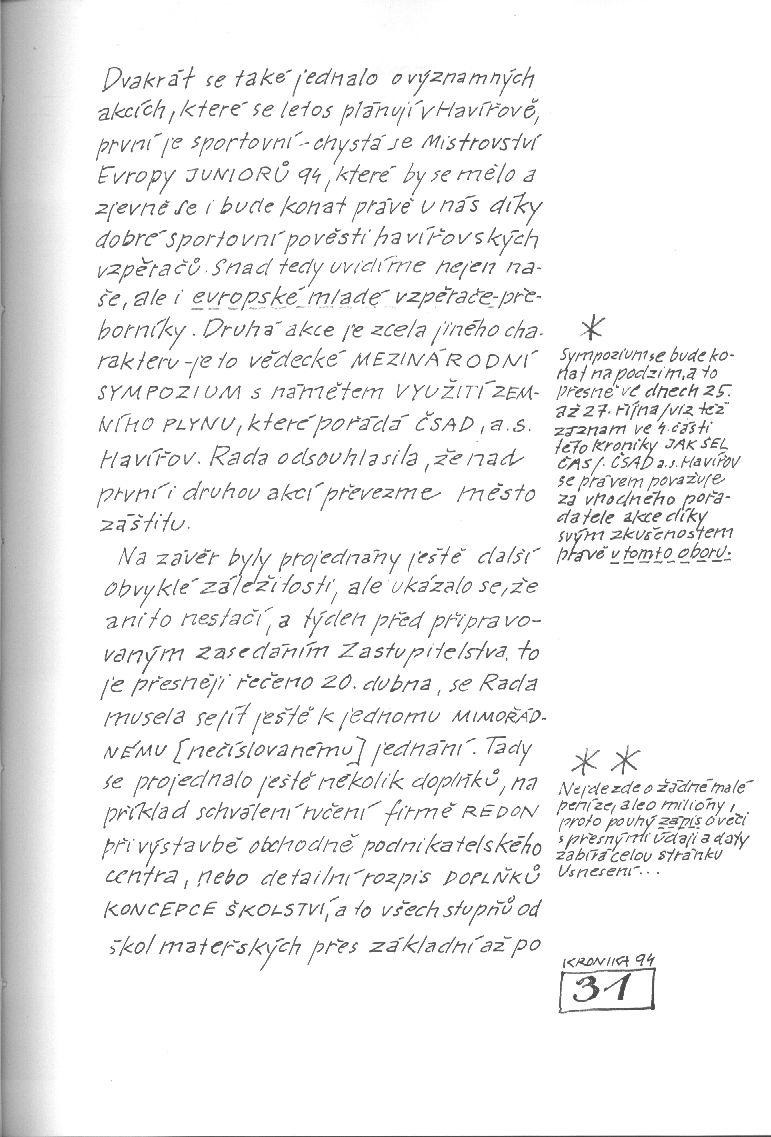 Dvakrát se také jednalo o významných
akcích, které se letos plánují v Havířově,
první je sportovní - chystá se Mistrovství
Evropy JUNIORŮ 94, které by se mělo a
zjevně se i bude konat právě u nás díky
dobré sportovní pověsti havířovských
vzpěračů. Snad tedy uvidíme nejen na-
še, ale i evropské mladé vzpěrače-pře-
borníky. Druhá akce je zcela jiného cha-
rakteru - je to vědecké MEZINÁRODNÍ
SYMPOZIUM s námětem VYUŽITÍ ZEM-
NÍHO PLYNU, které pořádá ČSAD, a.s.
Havířov. Rada odsouhlasila, že nad
první i druhou akcí převezme město
záštitu.
Na závěr byly projednány ještě další
obvyklé záležitosti, ale ukázalo se, že
ani to nestačí, a týden před připravo-
vaným zasedáním Zastupitelstva, to
je přesněji řečeno 20. dubna, se Rada
musela sejít ještě k jednomu MIMOŘÁD-
NÉMU [nečíslovanému] jednání. Tady
se projednalo ještě několik doplňků, na
příklad schválení ručení firmě REDON
při výstavbě obchodně podnikatelského
centra, nebo detailní rozpis DOPLŇKŮ
KONCEPCE ŠKOLSTVÍ, a to všech stupňů od
škol mateřských přes základní až po
*
Sympozium se bude ko-
nat na podzim, a to
přesně ve dnech 25.
až 27. října /viz též
záznam ve 4. části
této kroniky JAK ŠEL
ČAS/. ČSAD a.s. Havířov
se právem považuje
za vhodného pořa-
datele akce díky
svým zkušenostem
právě v tomto oboru.
* *
Nejde zde o žádné malé
peníze, ale o miliony,
proto pouhý zápis o věci
s přesnými údaji a daty
zabírá celou stránku
Usnesení...
KRONIKA 94
31